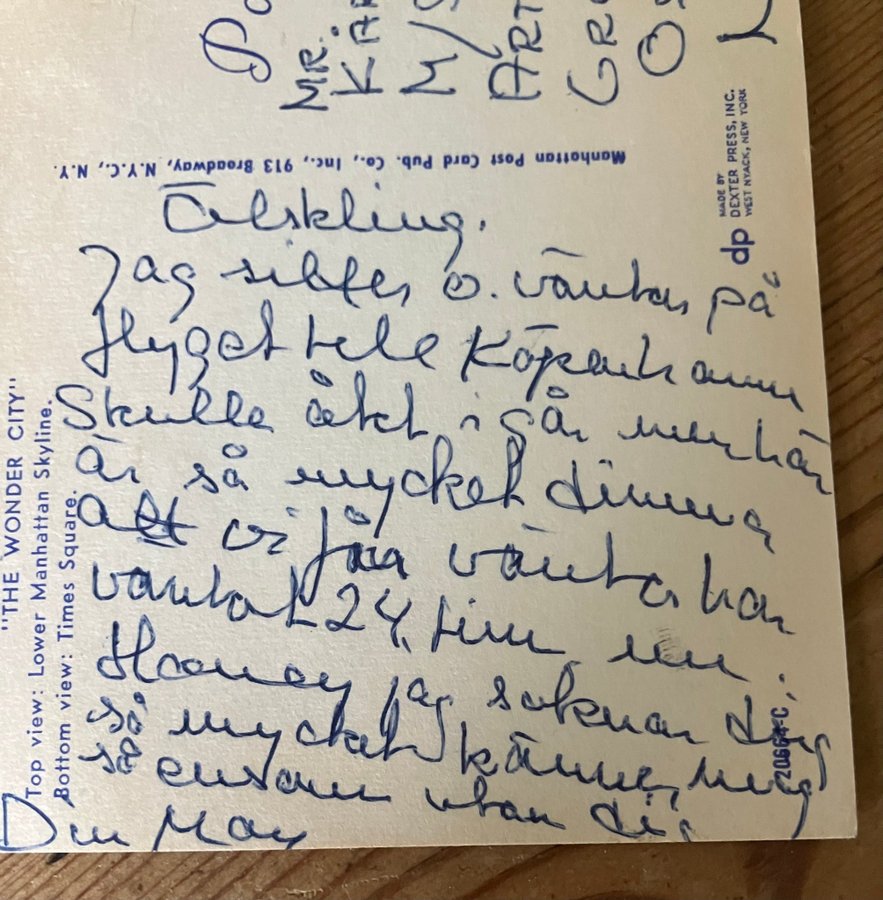 Po
MR.
KÄR
M/S
ART
GR
OS
L
Manhattan Post Card Pub. Co., Inc., 913 Broadway, N.Y.C., N.Y.
MADE BY
DEXTER PRESS, INC.
WEST NYACK, NEW YORK
dp
"THE WONDER CITY"
Top view: Lower Manhattan Skyline.
Bottom view: Times Square.
Älskling.
Jag sitter o. väntar på
flyget tele Köpenhamn
Skulle åkt i går men här
är så mycket dimma
att vi får vänta har
väntat 24 tim nu.
Hooney jag saknar dig
så mycket känner mig
så ensam utan dig
Din May